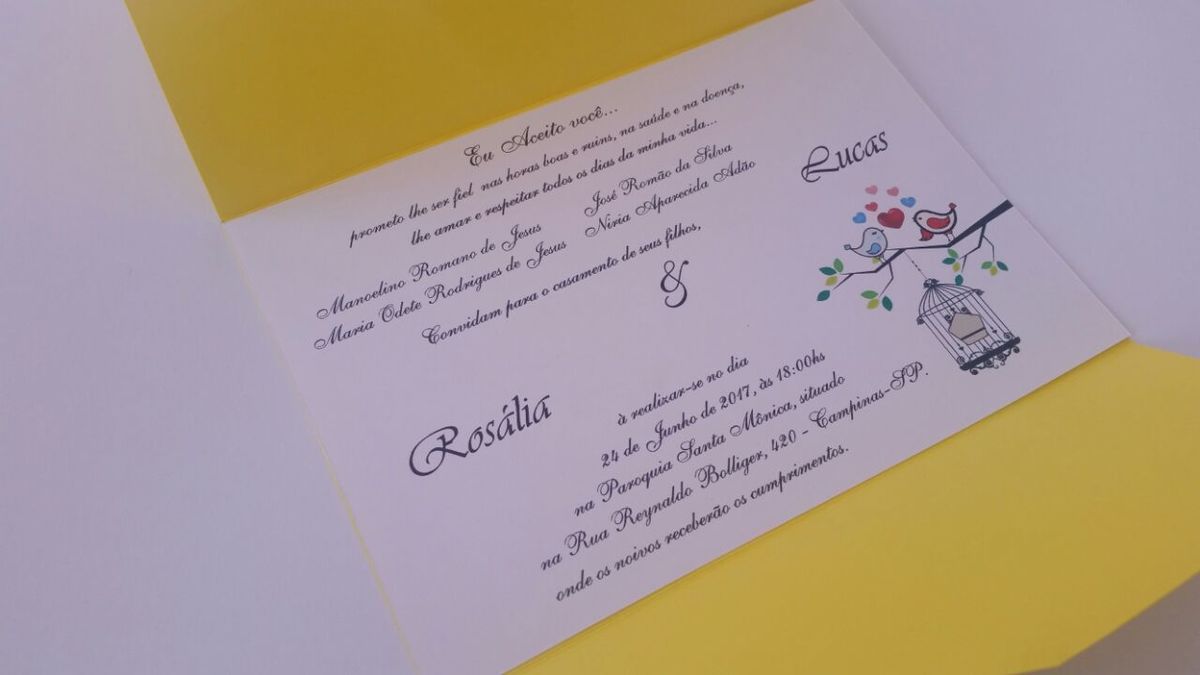 Eu Aceito você...
prometo lhe ser fiel nas horas boas e ruins, na saúde e na doença,
lhe amar e respeitar todos os dias da minha vida...
Manoelino Romano de Jesus José Romão da Silva
Maria Odete Rodrigues de Jesus Niria Aparecida Adão
Convidam para o casamento de seus filhos,
Rosália & Lucas
à realizar-se no dia
24 de Junho de 2017, às 18:00hs
na Paroquia Santa Mônica, situado
na Rua Reynaldo Bolliger, 420 - Campinas-SP.
onde os noivos receberão os cumprimentos.